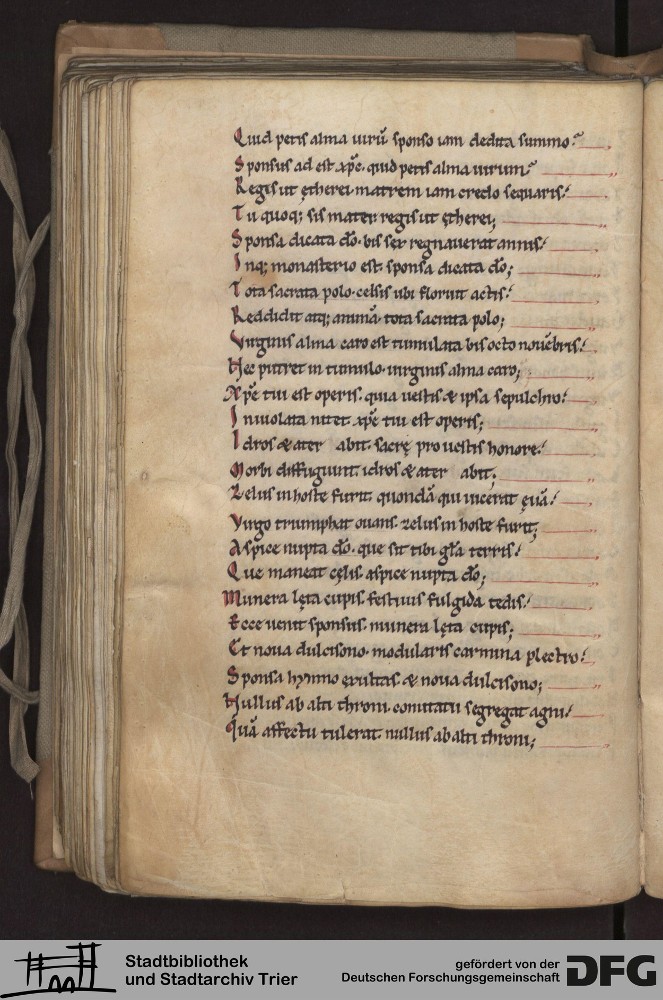 Quid petis alma uirū sponso iam dedita summo?
Sponsus ad est xp̄c. quid petis alma uirum?
Regis ut ętherei matrem iam credo sequaris!
Tu quoq; sis mater regis ut ętherei;
Sponsa dicata dō. bis sex regnauerat annis!
Inq; monasterio est sponsa dicata dō;
Tota sacrata polo. celsis ubi floruit actis!
Reddidit atq; animā. tota sacrata polo;
Virginis alma caro est tumulata bis octo nouēbris!
Nec putret in tumulo. uirginis alma caro;
Xp̄e tui est operis. quia uestis & ipsa sepulchro!
Inuiolata nitet. xp̄e tui est operis;
Idros & ater abit. sacrę pro uestis honore!
Morbi diffugiunt. idros & ater abit;
Zelus in hoste furit. quondā qui uicerat ęuā!
Virgo triumphat ouans. zelus in hoste furit;
Aspice nupta dō. que sit tibi gl̄a terris!
Que maneat cęlis. aspice nupta dō;
Munera lęta cupis. festiuis fulgida tedis!
Ecce uenit sponsus. munera lęta cupis;
Et noua dulcisono. modularis carmina plectro!
Sponsa hymno exultas. & noua dulcisono;
Nullus ab alti throni. comitatu segregat agni!
Quā affectu tulerat nullus ab alti throni;
Stadtbibliothek
und Stadtarchiv Trier
gefördert von der
Deutschen Forschungsgemeinschaft DFG